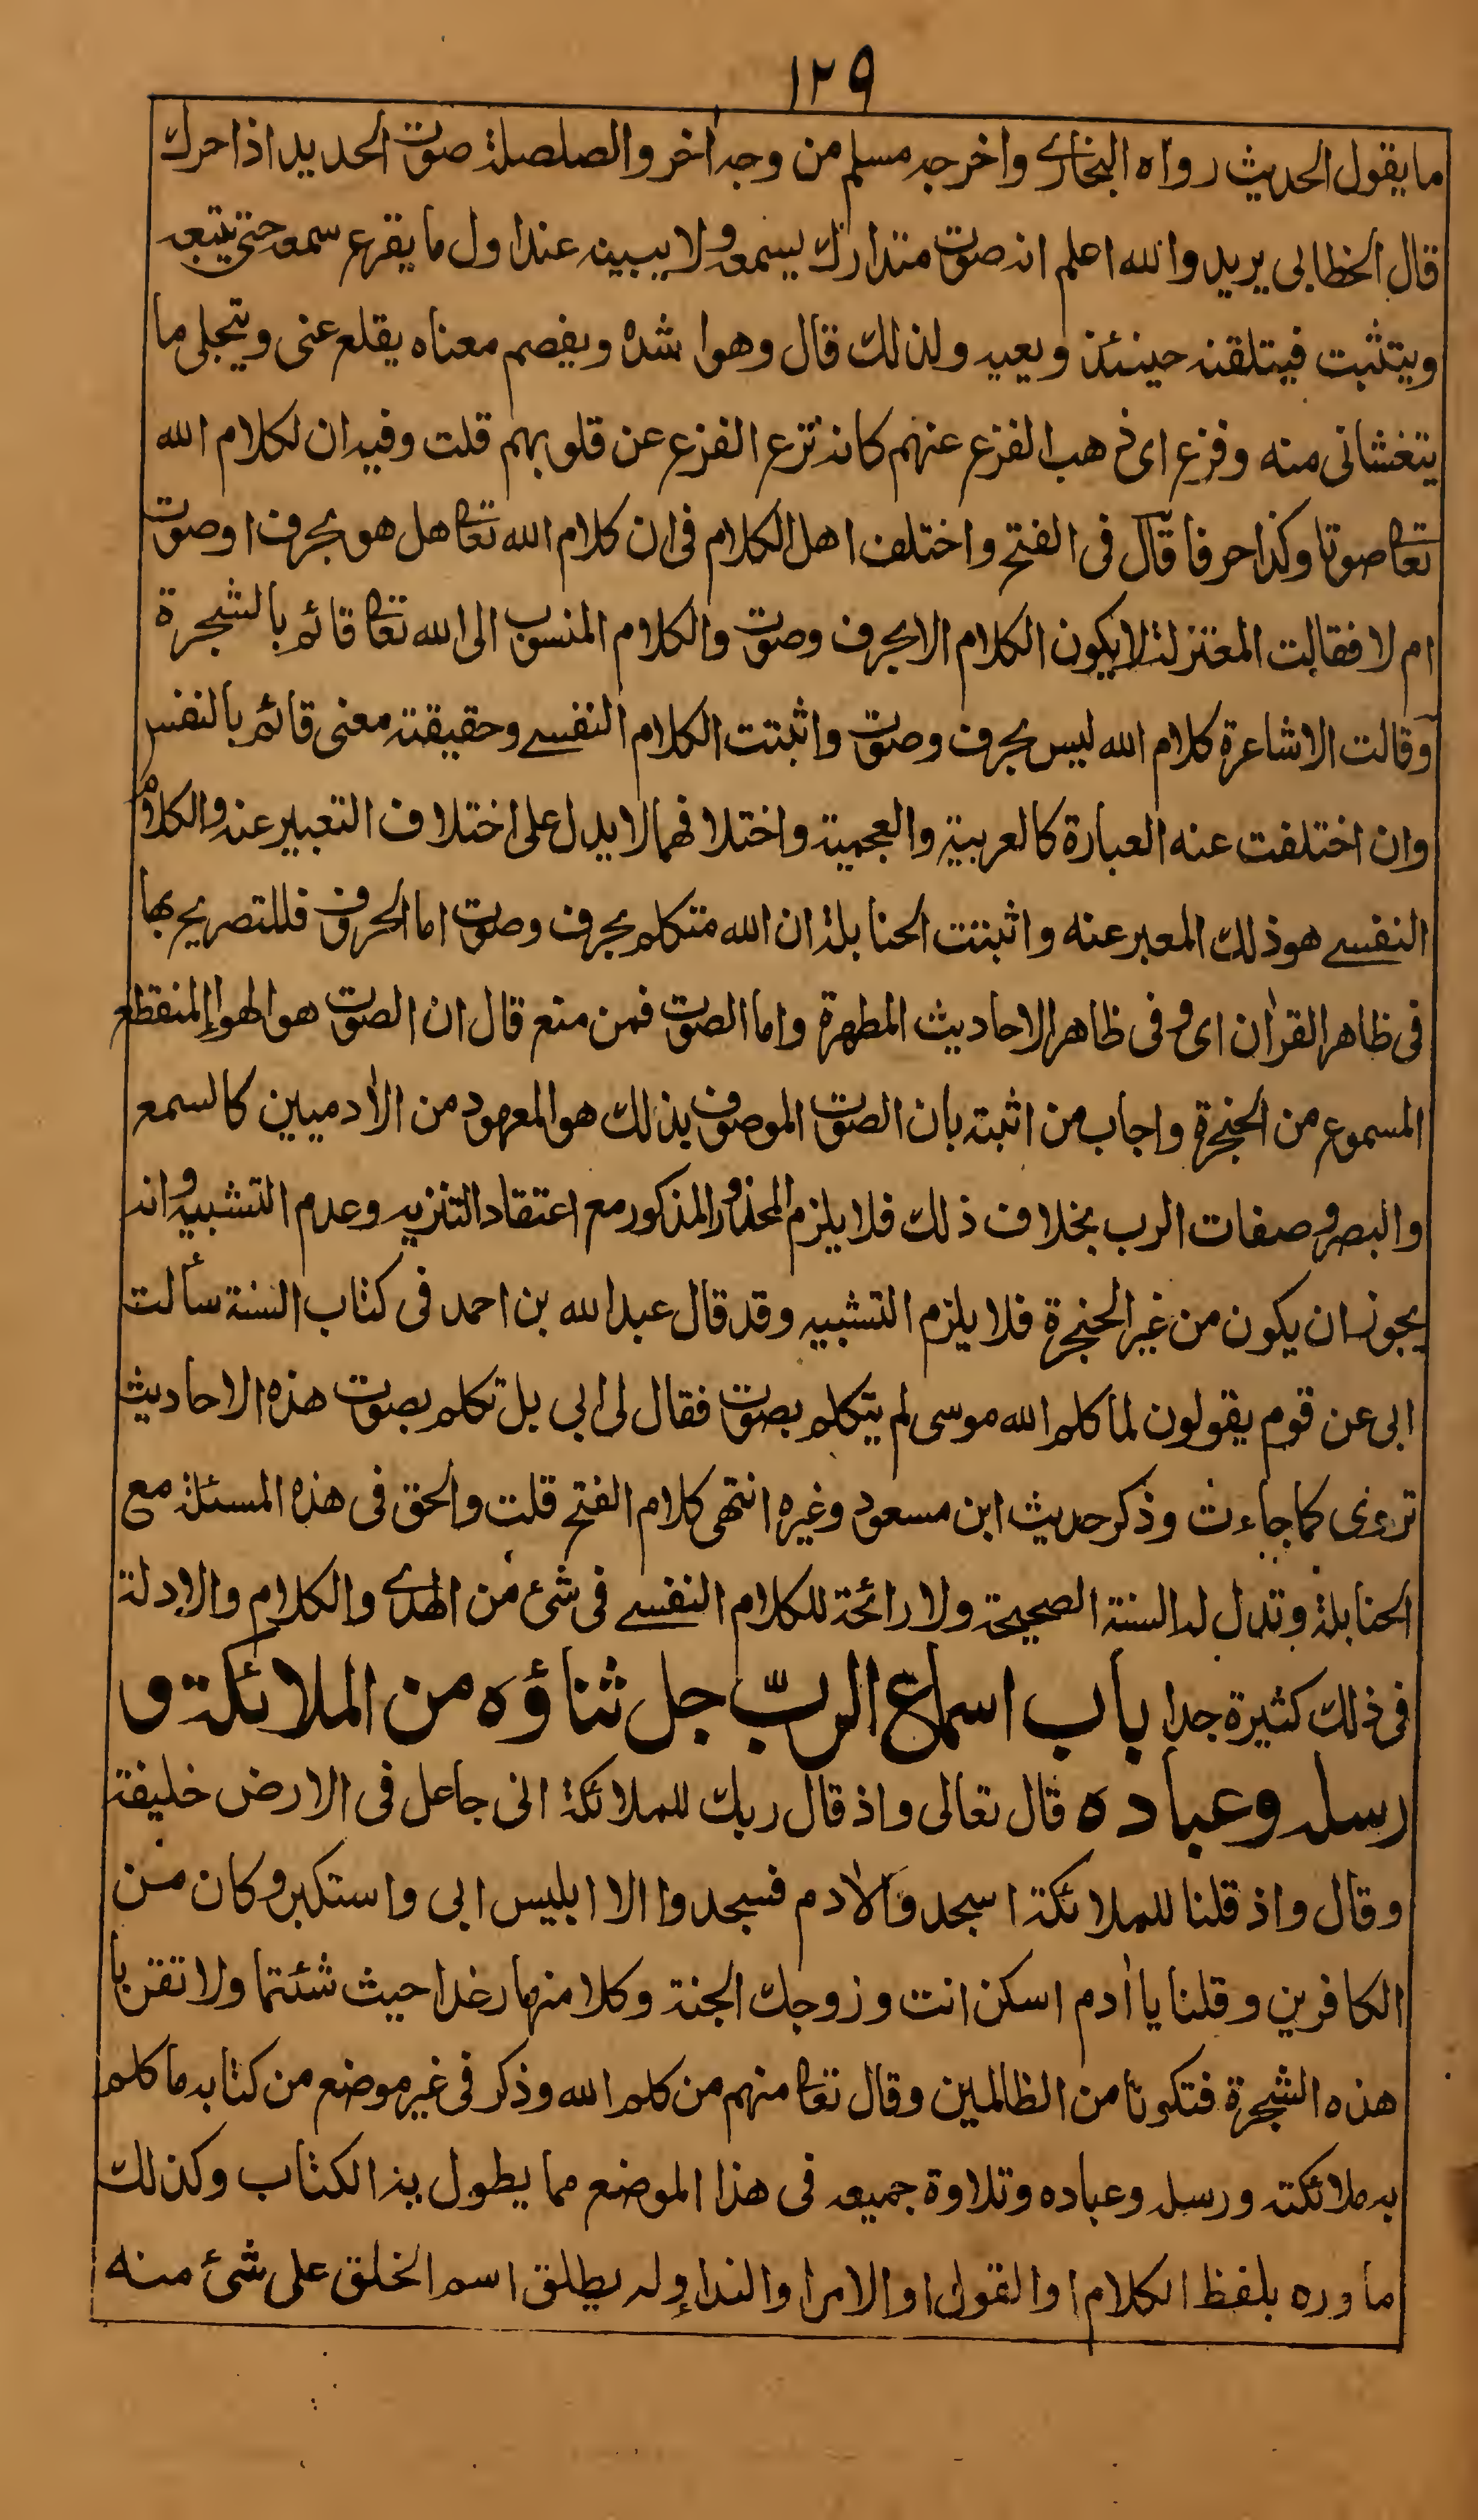 ١٢٩
ما يقول الحديث رواه البخاري واخرجه مسلم من وجه اخر والصلصلة صوت الحديد اذا حرك
قال الخطابي يريد والله اعلم انه صوت متدارك يسمعه ولا يبينه عند اول ما يقرع سمعه حتى يتبعه
ويتثبت فيتلقنه حينئذ ويعيه ولذلك قال وهو اشده ويفصم معناه يقلع عنى ويتجلى ما
يتغشانى منه وفزع اى ذهب الفزع عنهم كانه نزع الفزع عن قلوبهم قلت وفيه ان لكلام الله
تعا صوتا وكذا حرفا قال فى الفتح واختلف اهل الكلام فى ان كلام الله تعا هل هو بحرف او صوت
ام لا فقالت المعتزلة لا يكون الكلام الا بحرف وصوت والكلام المنسوب الى الله تعا قائم بالشجرة
وقالت الاشاعرة كلام الله ليس بحرف وصوت واثبتت الكلام النفسے وحقيقته معنى قائم بالنفس
وان اختلفت عنه العبارة كالعربية والعجمية واختلافهما لا يدل على اختلاف التعبير عنه والكلام
النفسے هو ذلك المعبر عنه واثبتت الحنابلة ان الله متكلم بحرف وصوت اما الحروف فللتصريح بها
فى ظاهر القراٰن اى وفى ظاهر الاحاديث المطهرة واما الصوت فمن منع قال ان الصوت هو الهواء المنقطع
المسموع من الحنجرة واجاب من اثبته بان الصوت الموصوف بذلك هو المعهود من الاٰدميين كالسمع
والبصر وصفات الرب بخلاف ذلك فلا يلزم المحذور المذكور مع اعتقاد التنزيه وعدم التشبيه وانه
يجوز ان يكون من غير الحنجرة فلا يلزم التشبيه وقد قال عبد الله بن احمد فى كتاب السنة سألت
ابى عن قوم يقولون لما كلم الله موسى لم يتكلم بصوت فقال لى ابى بل تكلم بصوت هذه الاحاديث
تروى كما جاءت وذكر حديث ابن مسعود وغيره انتهى كلام الفتح قلت والحق فى هذه المسئلة مع
الحنابلة وتدل له السنة الصحيحة ولا رائحة للكلام النفسے فى شئ من الهدى والكلام والادلة
فى ذلك كثيرة جدا باب اسماع الربّ جل ثناؤه من الملائكة و
رسله وعباده قال تعالى واذ قال ربك للملائكة انى جاعل فى الارض خليفة
وقال واذ قلنا للملائكة اسجدوا لاٰدم فسجدوا الا ابليس ابى واستكبر وكان من
الكافرين وقلنا يا اٰدم اسكن انت وزوجك الجنة وكلا منها رغدا حيث شئتما ولا تقربا
هذه الشجرة فتكونا من الظالمين وقال تعا منهم من كلم الله وذكر فى غير موضع من كتابه ما كلم
به ملائكته ورسله وعباده وتلاوة جميعه فى هذا الموضع مما يطول به الكتاب وكذلك
ما وره بلفظ الكلام او القول او الامر او النداء ولم يطلق اسم الخلق على شئ منه